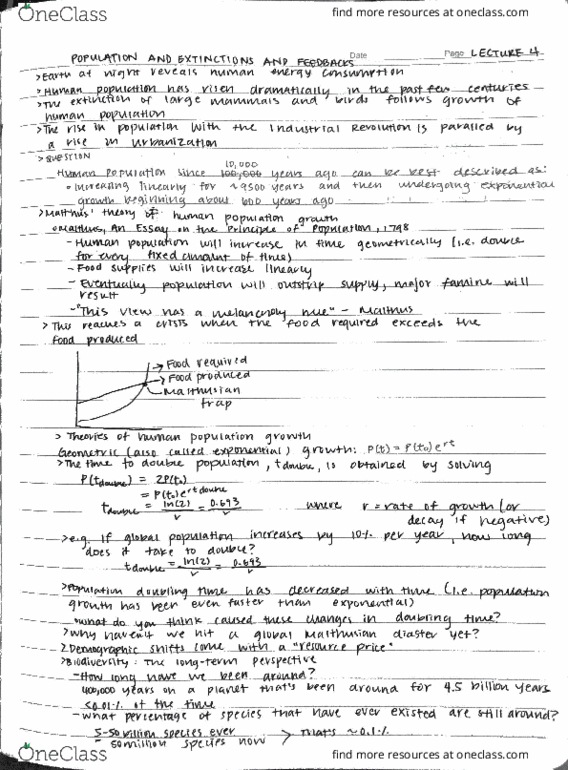 OneClass
find more resources at oneclass.com
Date
Page LECTURE 4
POPULATION AND EXTINCTIONS AND FEEDBACKS
>Earth at night reveals human energy consumption
>Human population has risen dramatically in the past few centuries
>The extinction of large mammals and birds follows growth of
human population
>The rise in population with the Industrial Revolution is paralled by
a rise in urbanization
>QUESTION
10,000
Human Population since 100,000 years ago can be best described as:
Increasing linearly for ~9500 years and then undergoing exponential
growth beginning about 600 years ago
>Malthus' theory of human population growth
Malthus, An Essay on the Principle of Population, 1798
- Human population will increase in time geometrically (i.e. double
for every fixed amount of time)
- Food supplies will increase linearly
- Eventually population will outstrip supply, major famine will
result
- "This view has a melancholy hue" - Malthus
> This reaches a crisis when the food required exceeds the
food produced
Food required
Food produced
Malthusian
trap
> Theories of human population growth
Geometric (also called exponential) growth: P(t) = P(t₀)e^rt
>The time to double population, t double, is obtained by solving
P(t double) = 2P(t₀)
= P(t₀)e^rt double
t double = ln(2)/r = 0.693/r where r = rate of growth (or
decay if negative)
>e.g. If global population increases by 10% per year, how long
does it take to double?
t double = ln(2)/r = 0.693/r
>Population doubling time has decreased with time (i.e. population
growth has been even faster than exponential)
what do you think caused these changes in doubling time?
>Why haven't we hit a global Malthusian diaster yet?
>Demographic shifts come with a "resource price"
>Biodiversity: The long-term perspective
-How long have we been around?
400,000 years on a planet that's been around for 4.5 billion years
<0.01% of the time
-What percentage of species that have ever existed are still around?
5-50 billion species ever
- 50 million species now > That's ~0.1%
OneClass
find more resources at oneclass.com